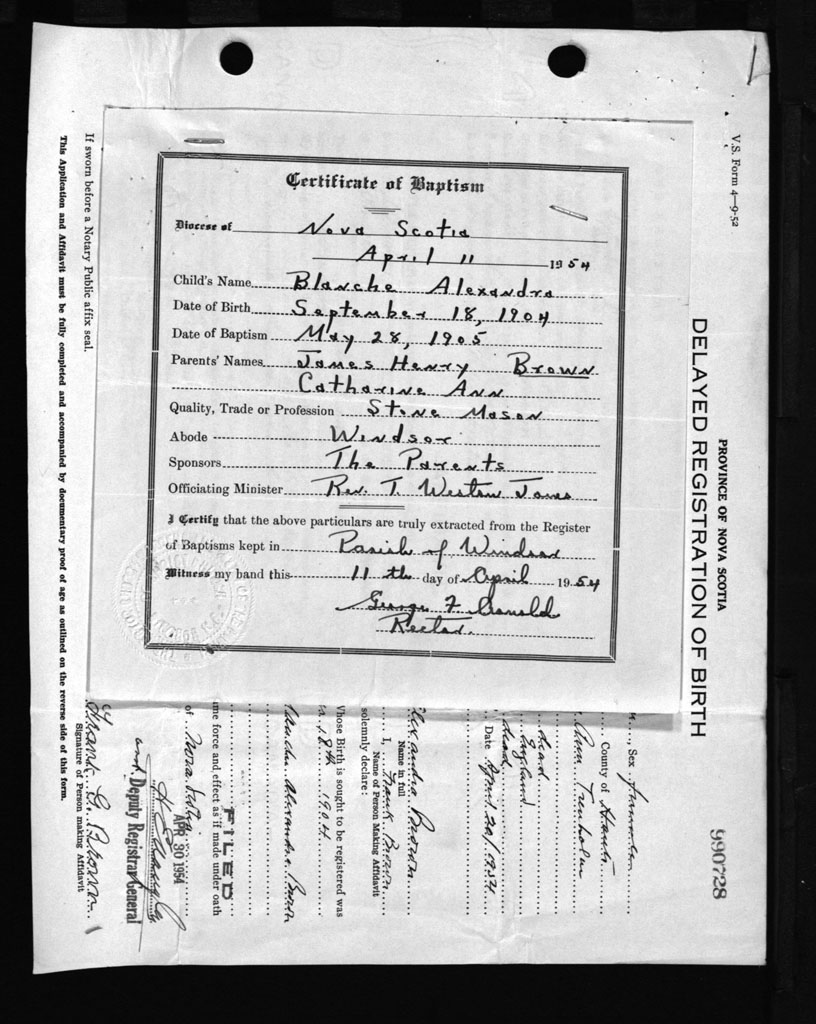 Certificate of Baptism
Diocese of Nova Scotia
April 11 1954
Child's Name Blanche Alexandra
Date of Birth September 18, 1904
Date of Baptism May 28, 1905
Parents' Names James Henry Brown
Catharine Ann
Quality, Trade or Profession Stone Mason
Abode Windsor
Sponsors The Parents
Officiating Minister Rev. T. Weston Jones
I Certify that the above particulars are truly extracted from the Register
of Baptisms kept in Parish of Windsor
Witness my hand this 11th day of April 1954
George F Arnold
Rector.
V.S. Form 4—9-52
PROVINCE OF NOVA SCOTIA
DELAYED REGISTRATION OF BIRTH
990728
Sex
County of Hants
Ann Trenholm
dead
England
dead
Date April 20/1954
Alexandra Brown
Name in full
I, Frank Brown
Name of Person Making Affidavit
solemnly declare:
Whose Birth is sought to be registered was
18th 1904
Blanche Alexandra Brown
FILED
me force and effect as if made under oath
of Nova Scotia
APR 30 1954
Deputy Registrar General
Frank G. Brown
Signature of Person making Affidavit
If sworn before a Notary Public affix seal.
This Application and Affidavit must be fully completed and accompanied by documentary proof of age as outlined on the reverse side of this form.